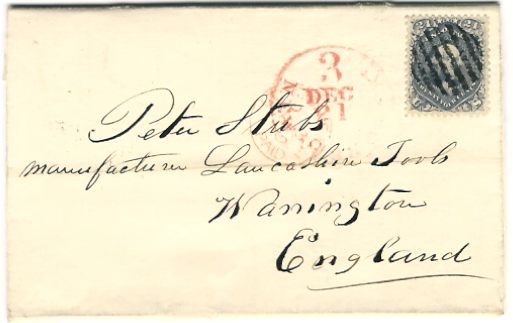 24 24
3
DEC
21
Peter Stubs
manufacturer Lancashire Tools
Warrington
England